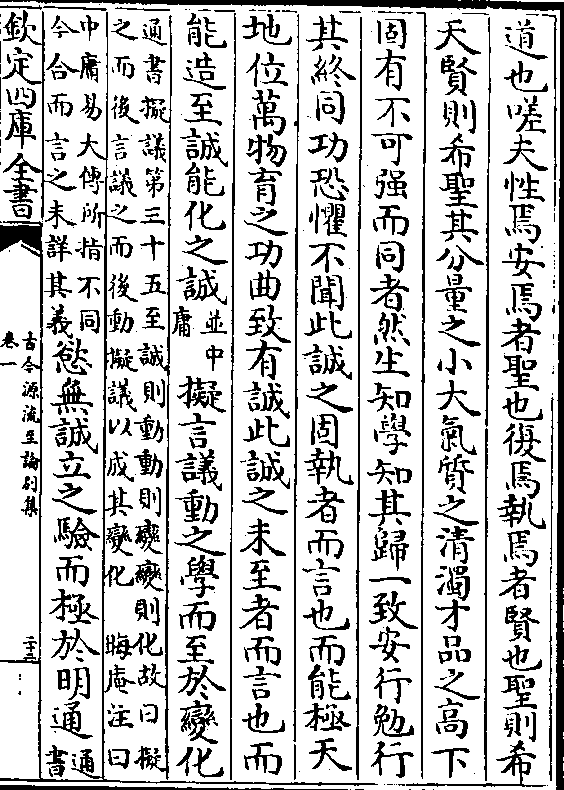 道也嗟夫性焉安焉者聖也復焉執焉者賢也聖則希
天賢則希聖其分量之小大氣質之清濁才品之高下
固有不可强而同者然生知學知其歸一致安行勉行
其終同功恐懼不聞此誠之固執者而言也而能極天
地位萬物育之功曲致有誠此誠之未至者而言也而
能造至誠能化之誠並中庸擬言議動之學而至於變化
通書擬議第三十五至誠則動動則變變則化故曰擬
之而後言議之而後動擬議以成其變化　晦庵注曰
中庸易大傳所指不同
今合而言之未詳其義
慾無誠立之驗而極於明通通書
欽定四庫全書
古今源流至論别集
卷一
二十三